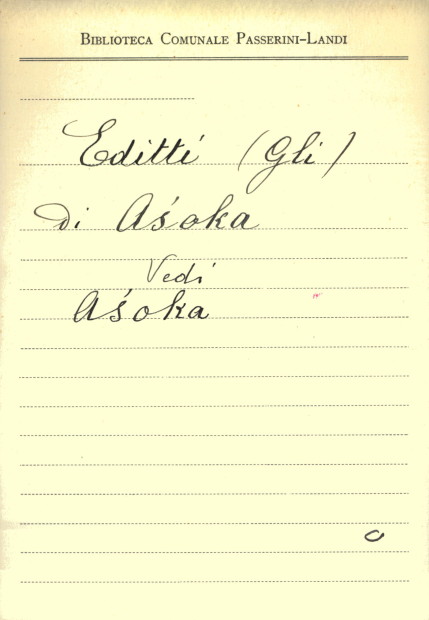 Biblioteca Comunale Passerini-Landi
Editti (Gli)
di Aśoka
Vedi
Aśoka